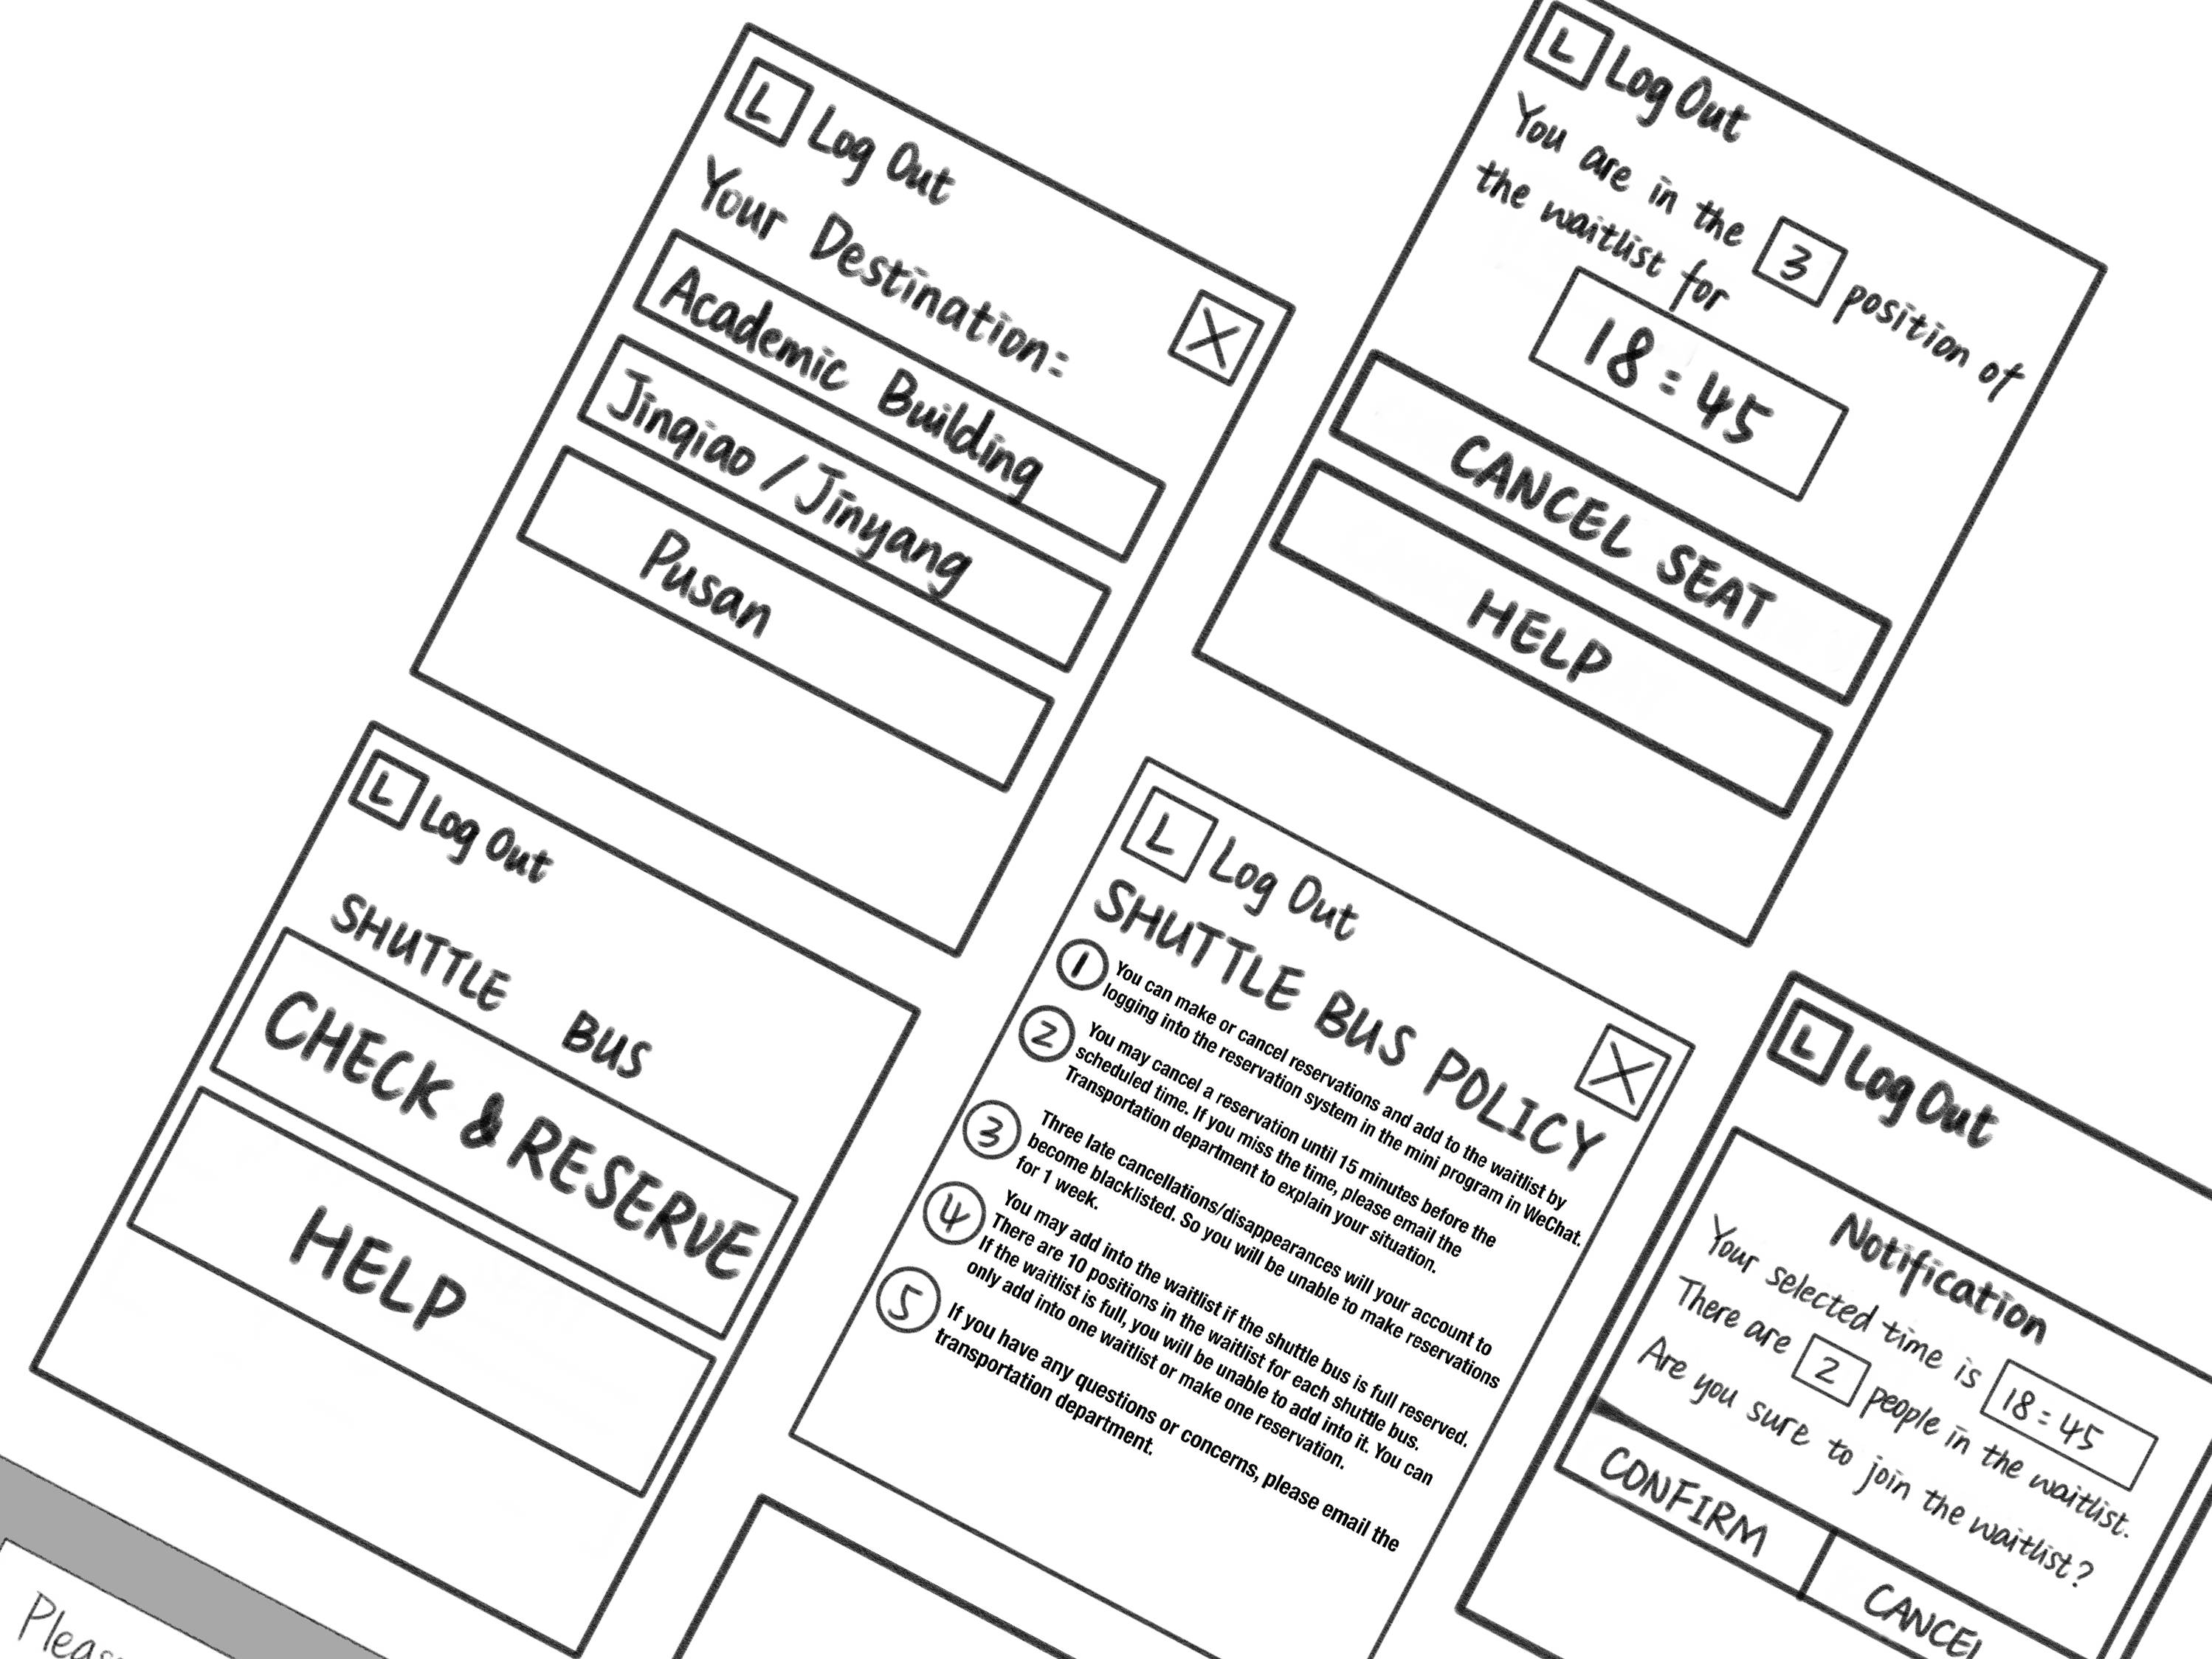 L Log Out
Your Destination:
X
Academic Building
Jinqiao / Jinyang
Pusan
L Log Out
You are in the 3 position of
the waitlist for
18:45
CANCEL SEAT
HELP
L Log Out
SHUTTLE BUS
CHECK & RESERVE
HELP
L Log Out
SHUTTLE BUS POLICY
X
1 You can make or cancel reservations and add to the waitlist by
logging into the reservation system in the mini program in WeChat.
2 You may cancel a reservation until 15 minutes before the
scheduled time. If you miss the time, please email the
Transportation department to explain your situation.
3 Three late cancellations/disappearances will your account to
become blacklisted. So you will be unable to make reservations
for 1 week.
4 You may add into the waitlist if the shuttle bus is full reserved.
There are 10 positions in the waitlist for each shuttle bus.
If the waitlist is full, you will be unable to add into it. You can
only add into one waitlist or make one reservation.
5 If you have any questions or concerns, please email the
transportation department.
L Log Out
Notification
Your selected time is 18:45
There are 2 people in the waitlist.
Are you sure to join the waitlist?
CONFIRM
CANCEL